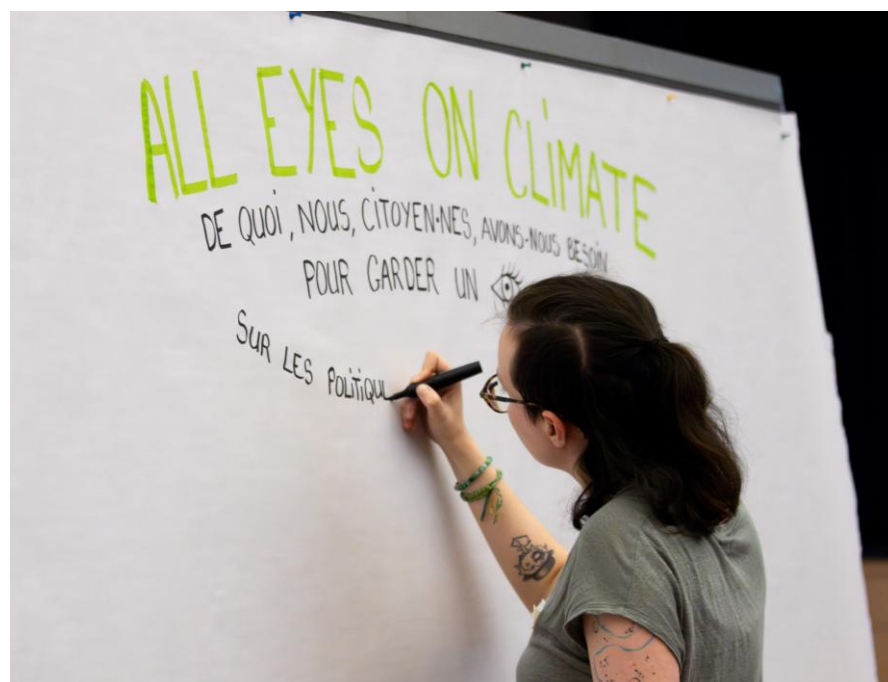 ALL EYES ON CLIMATE
DE QUOI, NOUS, CITOYEN·NES, AVONS-NOUS BESOIN
POUR GARDER UN
SUR LES POLITIQU